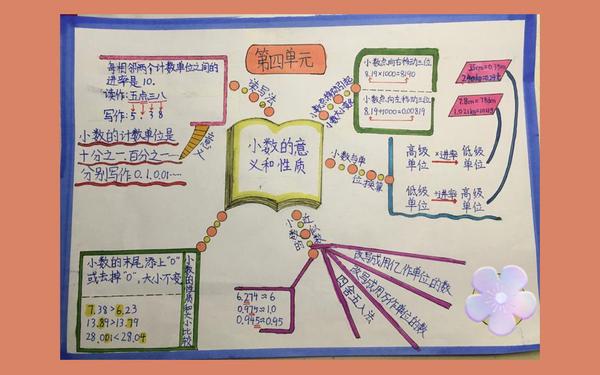 第四单元
小数的意
义和性质
读写法
每相邻两个计数单位之间的
进率是10.
读作:五点三八
写作:5.38
意义
小数的计数单位是
十分之一.百分之一……
分别写作0.1.0.01……
小数点移动引起
小数大小变化
小数点向右移动三位
8.19×1000=8190
小数点向左移动三位
8.19÷1000=0.00819
小数与单
位换算
高级
单位
×进率
低级
单位
低级
单位
÷进率
高级
单位
小数的
近似数
改写成用亿作单位的数
改写成用万作单位的数
四舍五入法
6.274≈6
0.975≈1.0
0.945≈0.95
小数的性质和大小比较
小数的末尾,添上“0”
或去掉“0”,大小不变
7.38>6.23
13.89>13.79
28.001<28.04